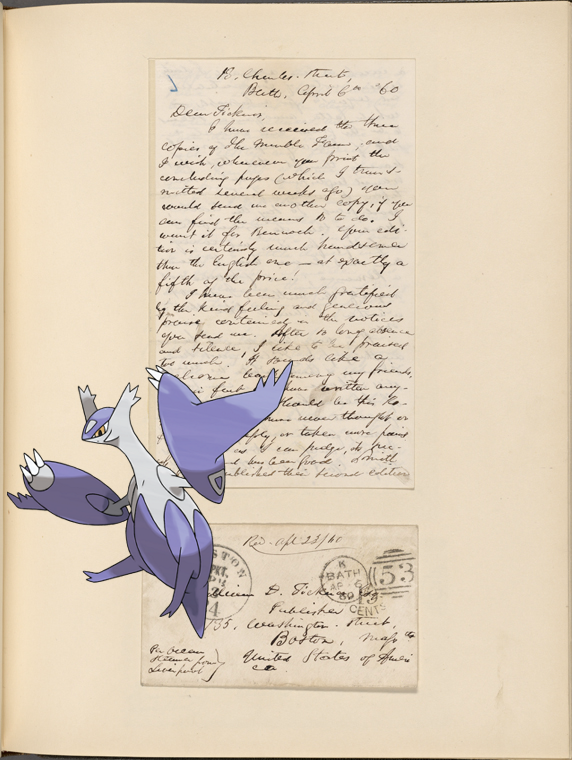 13. Charles Street,
Bath, April 6th '60
Dear Ticknor,
I have received the three
copies of The Marble Faun, and
I wish, whenever you print the
concluding pages (which I trans-
mitted several weeks ago) you
would send me another copy, if you
can find the means to do so. I
want it for Bennoch. Your edi-
tion is certainly much handsomer
than the English one — at exactly a
fifth of the price!
I have been much gratified
by the kind feeling and generous
praise contained in the notices
you send me. After so long absence
and silence, I like to be praised
too much. It sounds like a
welcome back among my friends.
in fact written any-
should be this Ro-
have never thought or
or taken more pains
as I can judge, its
has been good. Smith
published their second edition
Rec. Apl 23/60
BOSTON
PKT.
24
K
BATH
AP 6
60
53
3
CENTS
William D. Ticknor
Publisher
135, Washington Street,
Boston, Mass tts
United States of Ameri
ca.
Per Ocean
Steamer from
Liverpool